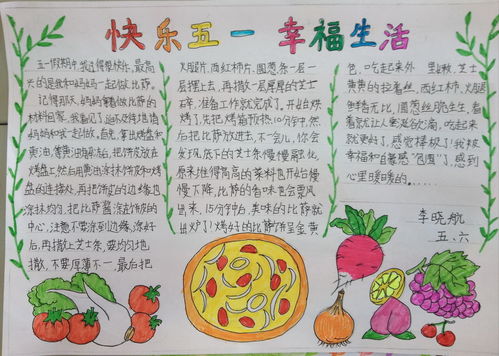 快乐五一 幸福生活
五一假期中,我过得很快乐,最高
兴的是我和妈妈一起做比萨。
记得那天,妈妈拿着做比萨的
材料回家,我看见了,迫不及待地请
妈妈和我一起做。首先,拿出烤盘和
黄油,等黄油融化后,把饼皮放在
烤盘上,然后用黄油涂抹饼皮和烤
盘的连接处,再把饼皮的边缘也
涂抹均匀,把比萨酱涂在饼皮的中
心,注意不要涂到边缘,涂好
后,再撒上芝士条,要均匀地
撒,不要厚薄不一,最后把
火腿片、西红柿片、圆葱条一层一
层摆上去,再撒一层厚厚的芝士
碎,准备工作就完成了。开始烘
烤了,先把烤箱预热,10分钟后,然
后把比萨放进去,不一会儿,你会
发现,底下的芝士条慢慢融化,
原来堆得高高的菜料也开始慢
慢下降,比萨的香味也会飘
出来,15分钟后,美味的比萨就
出炉了!烤好的比萨饼呈金黄
色,吃起来外 里嫩,芝士
黄黄的拉着丝,西红柿片、火腿
伴着无比,圆葱丝脆生生,看
着就让人垂涎欲滴,吃起来
就更好了,感觉棒极了!我被
幸福和自豪感"包围"了,感到
心里暖暖的……
李晓航
五.六